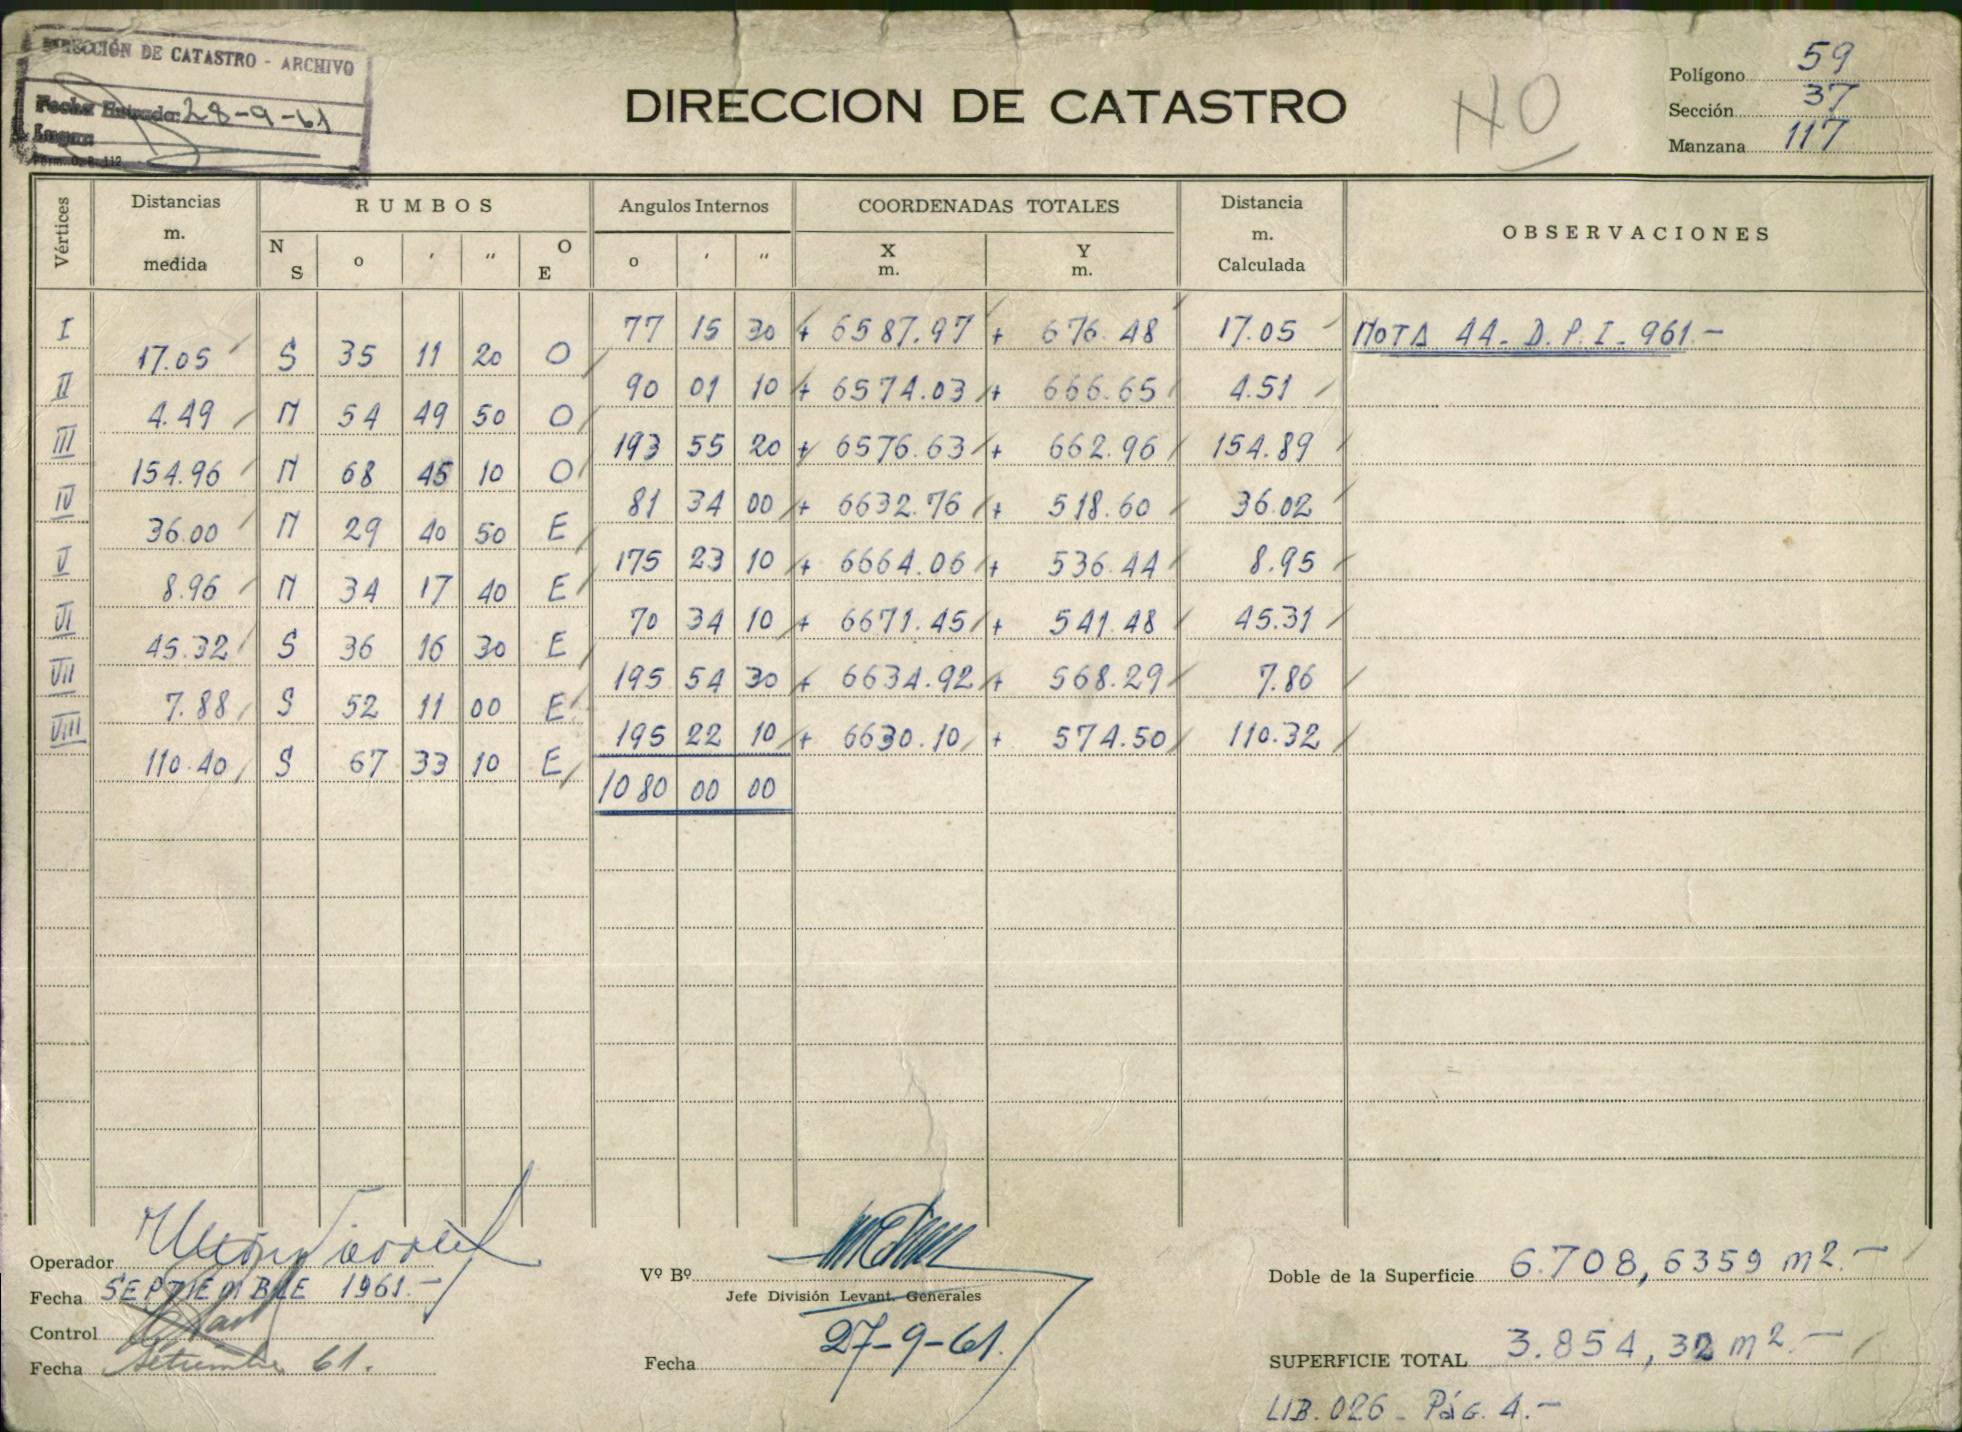 DIRECCIÓN DE CATASTRO - ARCHIVO
Fecha Entrada: 28-9-61
Form. O. P. 112
DIRECCION DE CATASTRO
NO
Polígono 59
Sección 37
Manzana 117
Vértices
Distancias m. medida
RUMBOS
N S o ′ ″ O E
Angulos Internos
o ′ ″
COORDENADAS TOTALES
X m. Y m.
Distancia m. Calculada
OBSERVACIONES
I 77 15 30 + 6587.97 + 676.48 17.05 NOTA 44 - D.P.I - 961.-
17.05 S 35 11 20 O
II 90 01 10 + 6574.03 + 666.65 4.51
4.49 N 54 49 50 O
III 193 55 20 + 6576.63 + 662.96 154.89
154.96 N 68 45 10 O
IV 81 34 00 + 6632.76 + 518.60 36.02
36.00 N 29 40 50 E
V 175 23 10 + 6664.06 + 536.44 8.95
8.96 N 34 17 40 E
VI 70 34 10 + 6671.45 + 541.48 45.31
45.32 S 36 16 30 E
VII 195 54 30 + 6634.92 + 568.29 7.86
7.88 S 52 11 00 E
VIII 195 22 10 + 6630.10 + 574.50 110.32
110.40 S 67 33 10 E
1080 00 00
Operador
Fecha SEPTIEMBRE 1961.-
Control
Fecha Setiembre 61.
Vº Bº
Jefe División Levant. Generales
Fecha 27-9-61.
Doble de la Superficie 6.708,6359 m2.-
SUPERFICIE TOTAL 3.854,32 m2.-
LIB. 026 - Pág. 4.-